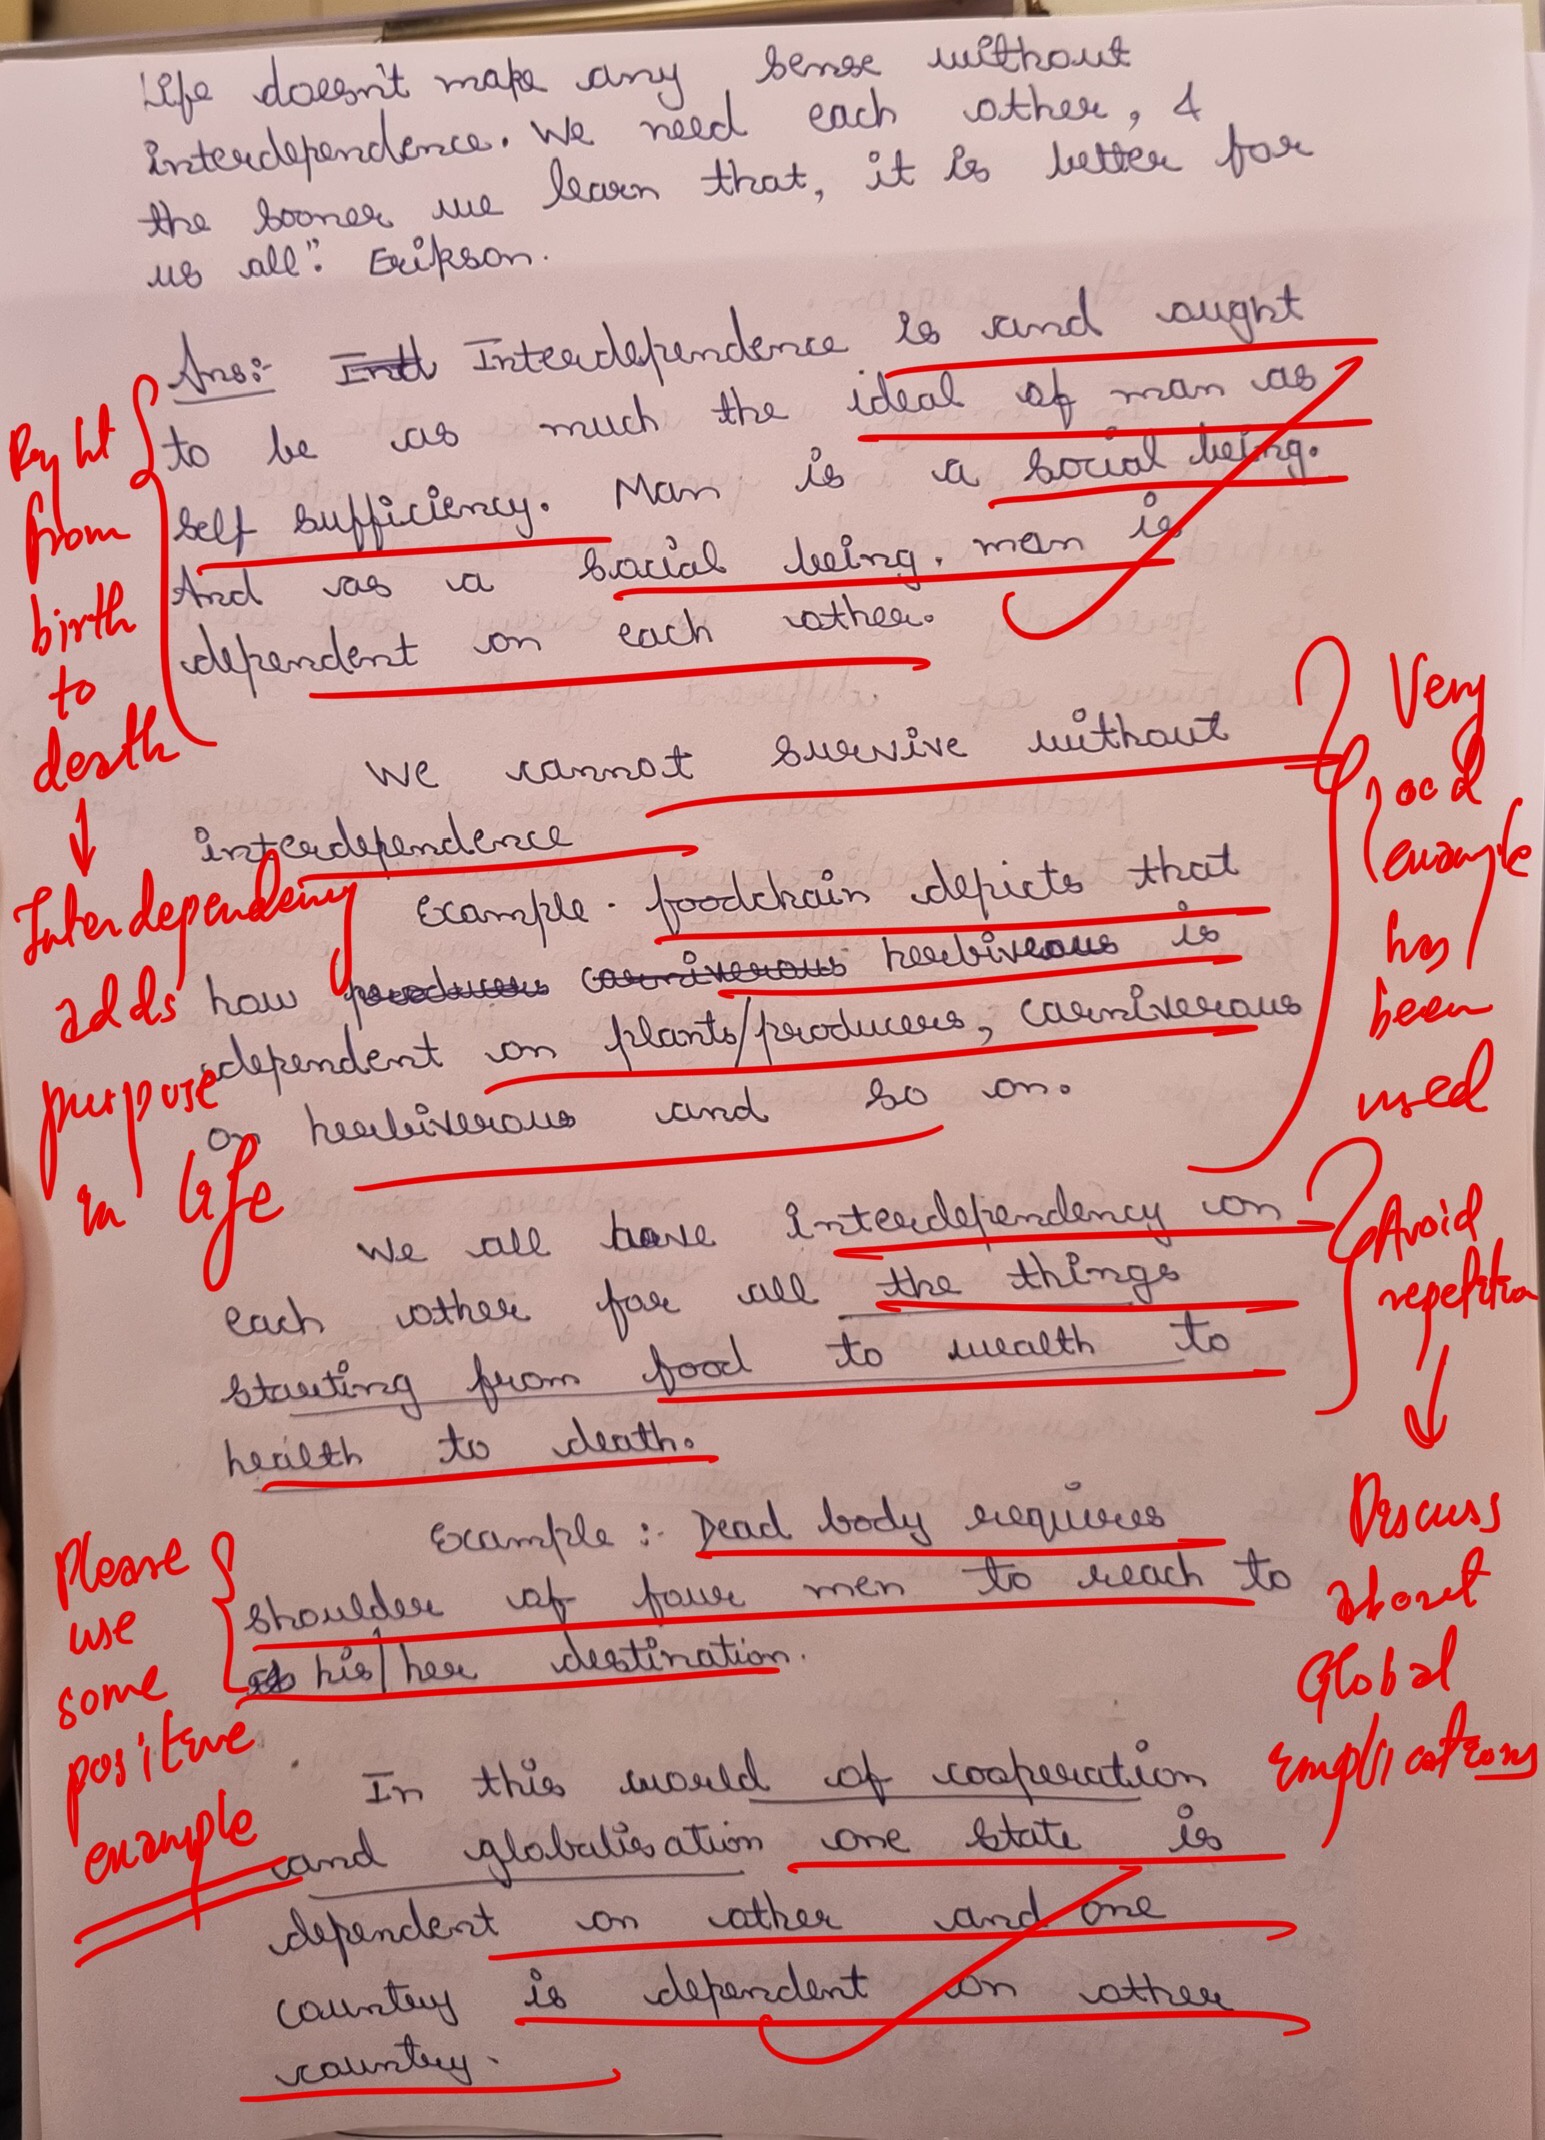 Life doesn't make any sense without
interdependence. We need each other, &
the sooner we learn that, it is better for
us all". Erikson.
Ans:- Interdependence is and ought
to be as much the ideal of man as
self sufficiency. Man is a social being.
And as a social being, man is
dependent on each other.
Right
from
birth
to
death
↓
Interdependency
adds
purpose
in life
We cannot survive without
interdependence
Example. foodchain depicts that
how producers carniverous herbiverous is
dependent on plants/producers, carniverous
on herbiverous and so on.
Very
good
example
has
been
used
We all have interdependency on
each other for all the things
starting from food to wealth to
health to death.
Avoid
repetition
↓
Discuss
about
Global
Implications
Example :- Dead body requires
shoulder of four men to reach to
his/her destination.
Please
use
some
positive
example
In this world of cooperation
and globalisation one state is
dependent on other and one
country is dependent on other
country.